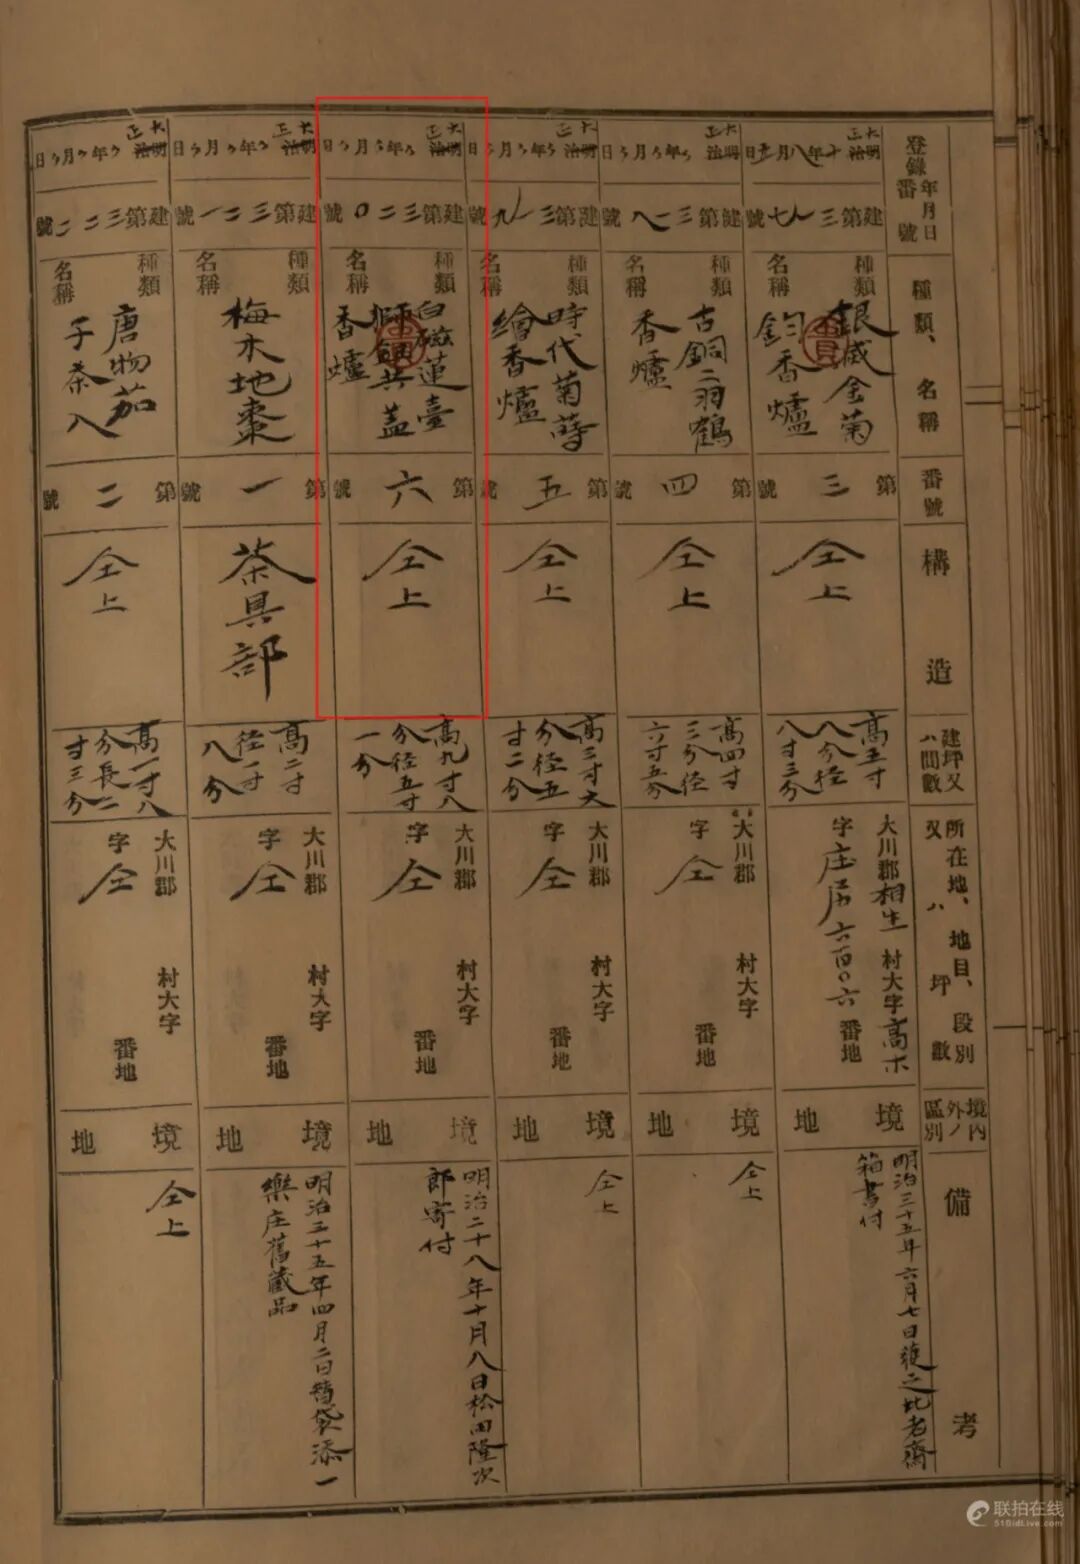 登錄年月日
番號
種類、名稱
番號
構造
建坪又ハ間數
所在地、地目、段別
又ハ坪數
境內外ノ區別
備考
大正
明治
十年八月五日
建第三一七號
種類
名稱
銀威金菊
鈞香爐
第三號
仝上
高五寸
八分徑
八寸三分
大川郡相生村大字高木
字庄居六百〇六番地
境地
明治三十五年六月七日
箱書付
大正
明治
〃年〃月〃日
建第三一八號
種類
名稱
古銅二羽鶴
香爐
第四號
仝上
高四寸
三分徑
六寸五分
大川郡村大字
字仝番地
境地
仝上
大正
明治
〃年〃月〃日
建第三一九號
種類
名稱
時代菊蒔
繪香爐
第五號
仝上
高三寸六
分徑五
寸二分
大川郡村大字
字仝番地
境地
仝上
大正
明治
〃年〃月〃日
建第三二〇號
種類
名稱
白磁蓮臺
獅鈕共蓋
香爐
第六號
仝上
高九寸八
分徑五寸
一分
大川郡村大字
字仝番地
境地
明治二十八年十月八日松田隆次
郎寄付
大正
明治
〃年〃月〃日
建第三二一號
種類
名稱
梅木地棗
第一號
茶具部
高二寸
徑一寸
八分
大川郡村大字
字仝番地
境地
明治三十五年四月二日替袋添一
樂庄舊藏品
大正
明治
〃年〃月〃日
建第三二二號
種類
名稱
唐物茄
子茶入
第二號
仝上
高一寸八
分長二
寸三分
大川郡村大字
字仝番地
境地
仝上
联拍在线
51BidLive.com